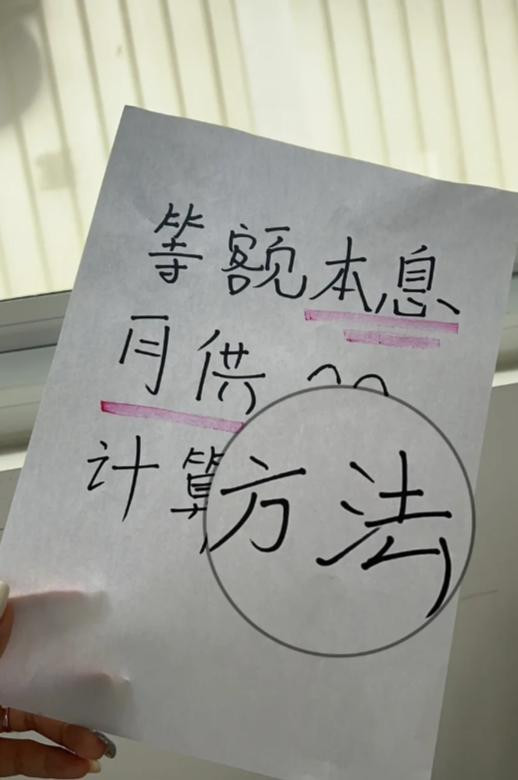 等额本息
月供
计算方法